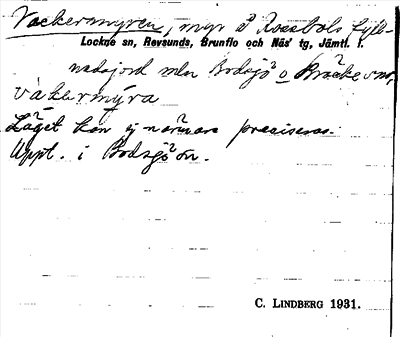 Vackermyren, myr å Rossbols fyll-
Lockne sn, Revsunds, Brunflo och Näs' tg, Jämtl. l.
nadsjord mln Bodsjö o Bräcke snr,
vákermýra
Läget kan ej närmare preciseras.
Uppt. i Bodsjö sn.
C. LINDBERG 1931.